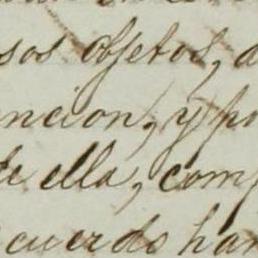 sos objetos, a
ncion, y po
de ella, comp
cuerdo han